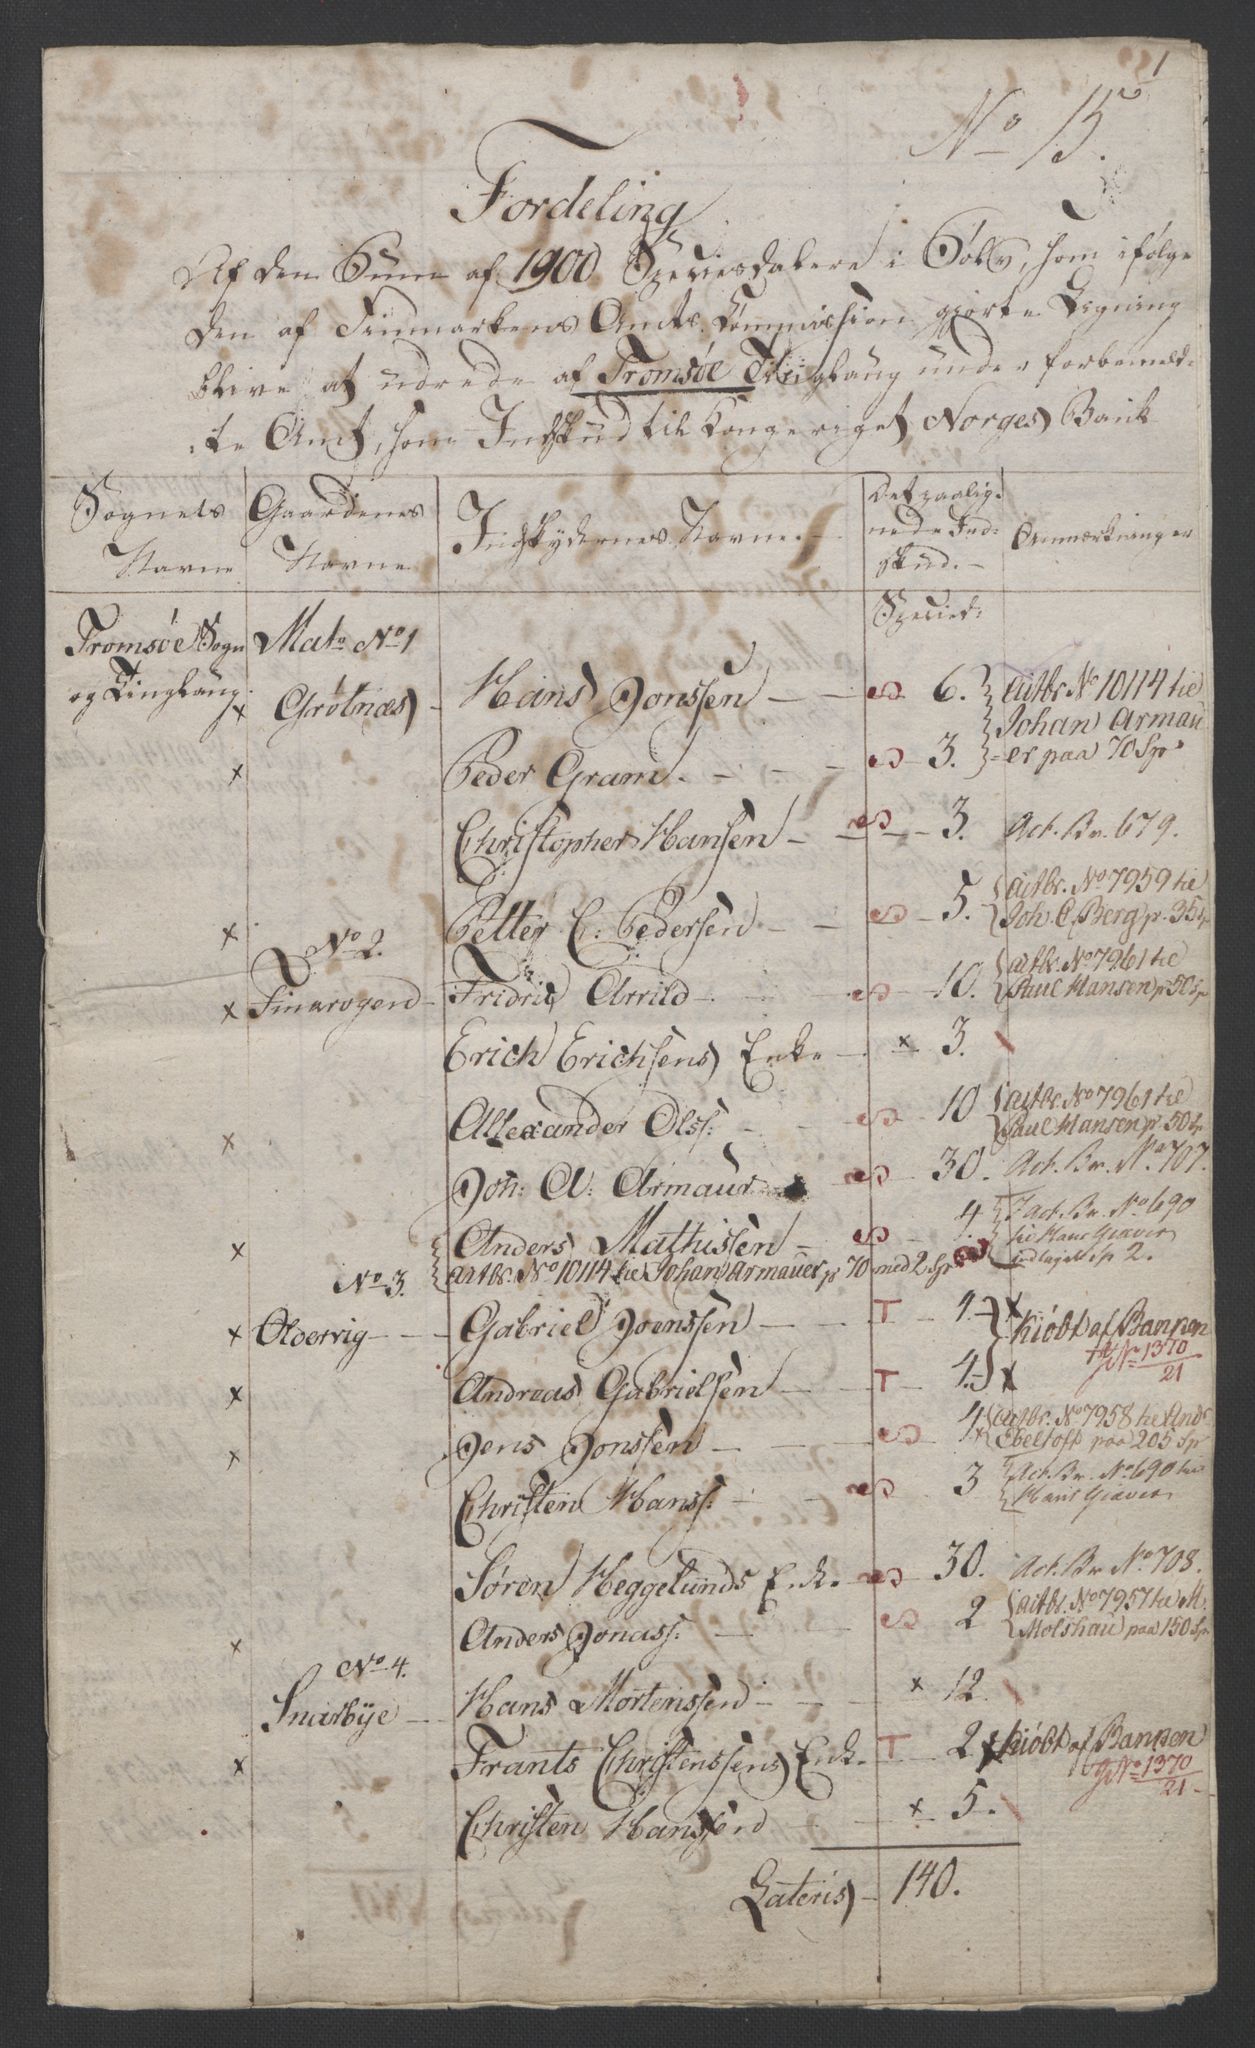 1
No 15.
Fordeling
Af den Sum af 1900 Speciesdalere i Sølv, som ifølge
den af Finmarkens Amts Commission gjorte Ligning
blive at udrede af Tromsøe Tinglaug under forbemeld-
te Amt, som Indskud til Kongeriget Norges Bank
Sognets Navne
Gaardenes Navne
Indskydernes Navne.
Det paalig-
nede Ind-
skud.
Anmærkninger
Specied:
Tromsøe Sogn
og Tinglaug.
Mat. No 1
x Grøtnæs Hans Jonssen S 6. actbr. No 10114 til
Johan Armau
x Peder Gram S 3. er paa 70 Sp
Christopher Hansen S 3. Act. Br. 679.
x Petter C: Pedersen S 5. actbr. No 7959 til
Joh. C. Berg p. 35 Sp
No 2.
x Finkrogen Fridric Arrild S 10. actbr. No 7961 til
Paul Hansen p 50 Sp
Erich Erichsens Enke x 3.
x Allexander Olss: S 10 actbr. No 7961 til
Paul Hansen p. 50 Sp
Joh: A: Armaur S 30. Act. Br. No 707.
x Anders Mathissen S 4 Act. Br. No 690
til Hans Giæver
indlaget p 2.
actbr. No 10114 til Johan Armauer p 70 med 2 Sp S
No 3.
x Olvervig Gabriel Joenssen T 4. x kiøbt af Banken
No 1370
21
x Andreas Gabrielsen T 4. x
x Jens Jonssen S 4 actbr. No 7958 til And
Ebeltoft paa 205 Sp
Christen Hanss: S 3 Act. Br. No 690 til
Hans Giæver
Søren Heggelunds Enk. S 30. Act. Br No 708.
x Anders Jonass: S 2 actbr. No 7957 til M.
Molshau paa 150 Sp
No 4.
Snarbye Hans Mortenssen x 12
x Frants Christenssens Enk. T 2 x kiøbt af Banken
No 1370
21
Christen Hanssen x 5.
Lateris 140.